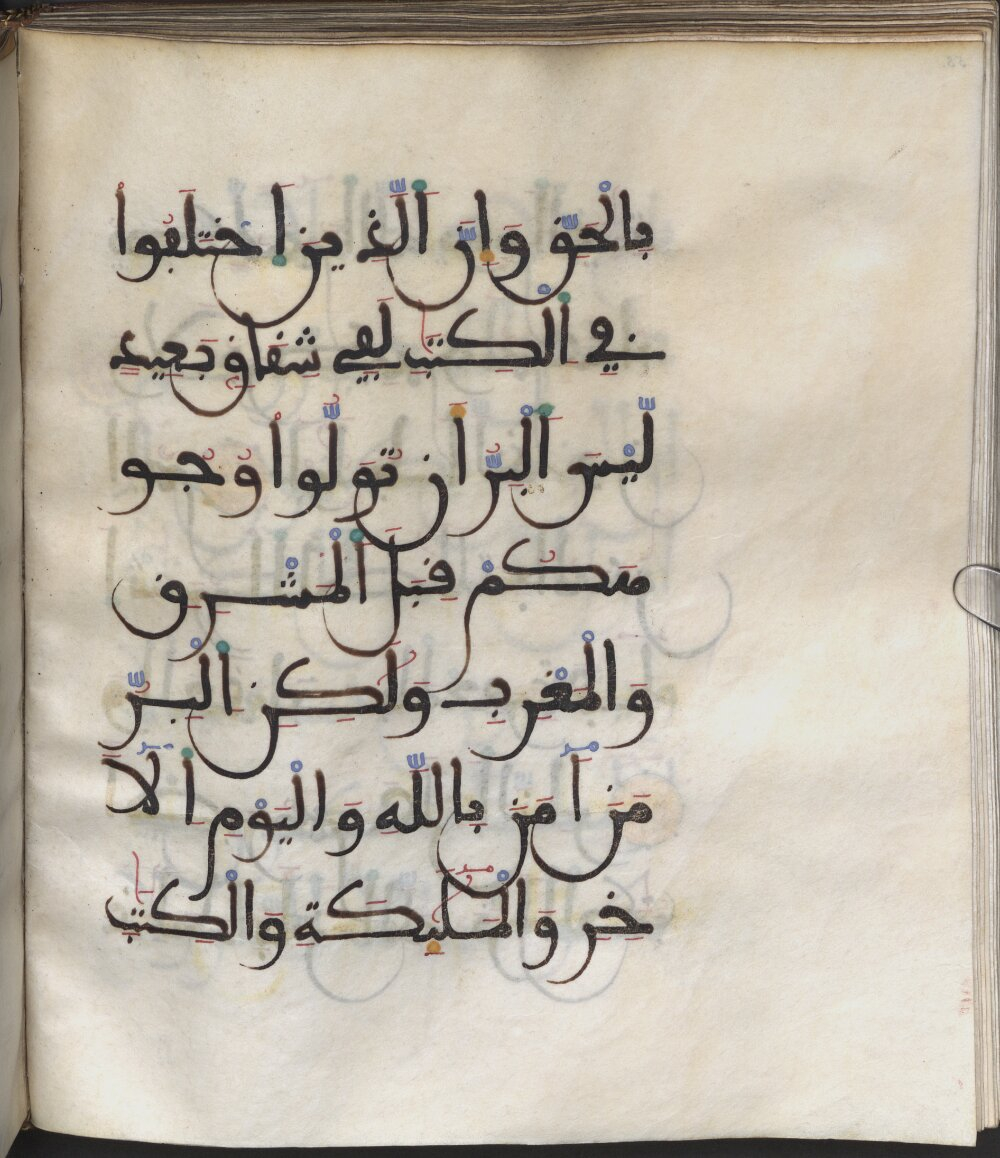 بِالْحَقِّ وَإِنَّ الَّذِينَ اخْتَلَفُوا
فِي الْكِتَٰبِ لَفِي شِقَاقٍ بَعِيدٍ
لَّيْسَ الْبِرُّ أَن تُوَلُّوا وُجُو
هَكُمْ قِبَلَ الْمَشْرِقِ
وَالْمَغْرِبِ وَلَٰكِنِ الْبِرُّ
مَنَ ءَامَنَ بِاللَّهِ وَالْيَوْمِ الَا
خِرِ وَالْمَلَٰئِكَةِ وَالْكِتَٰبِ